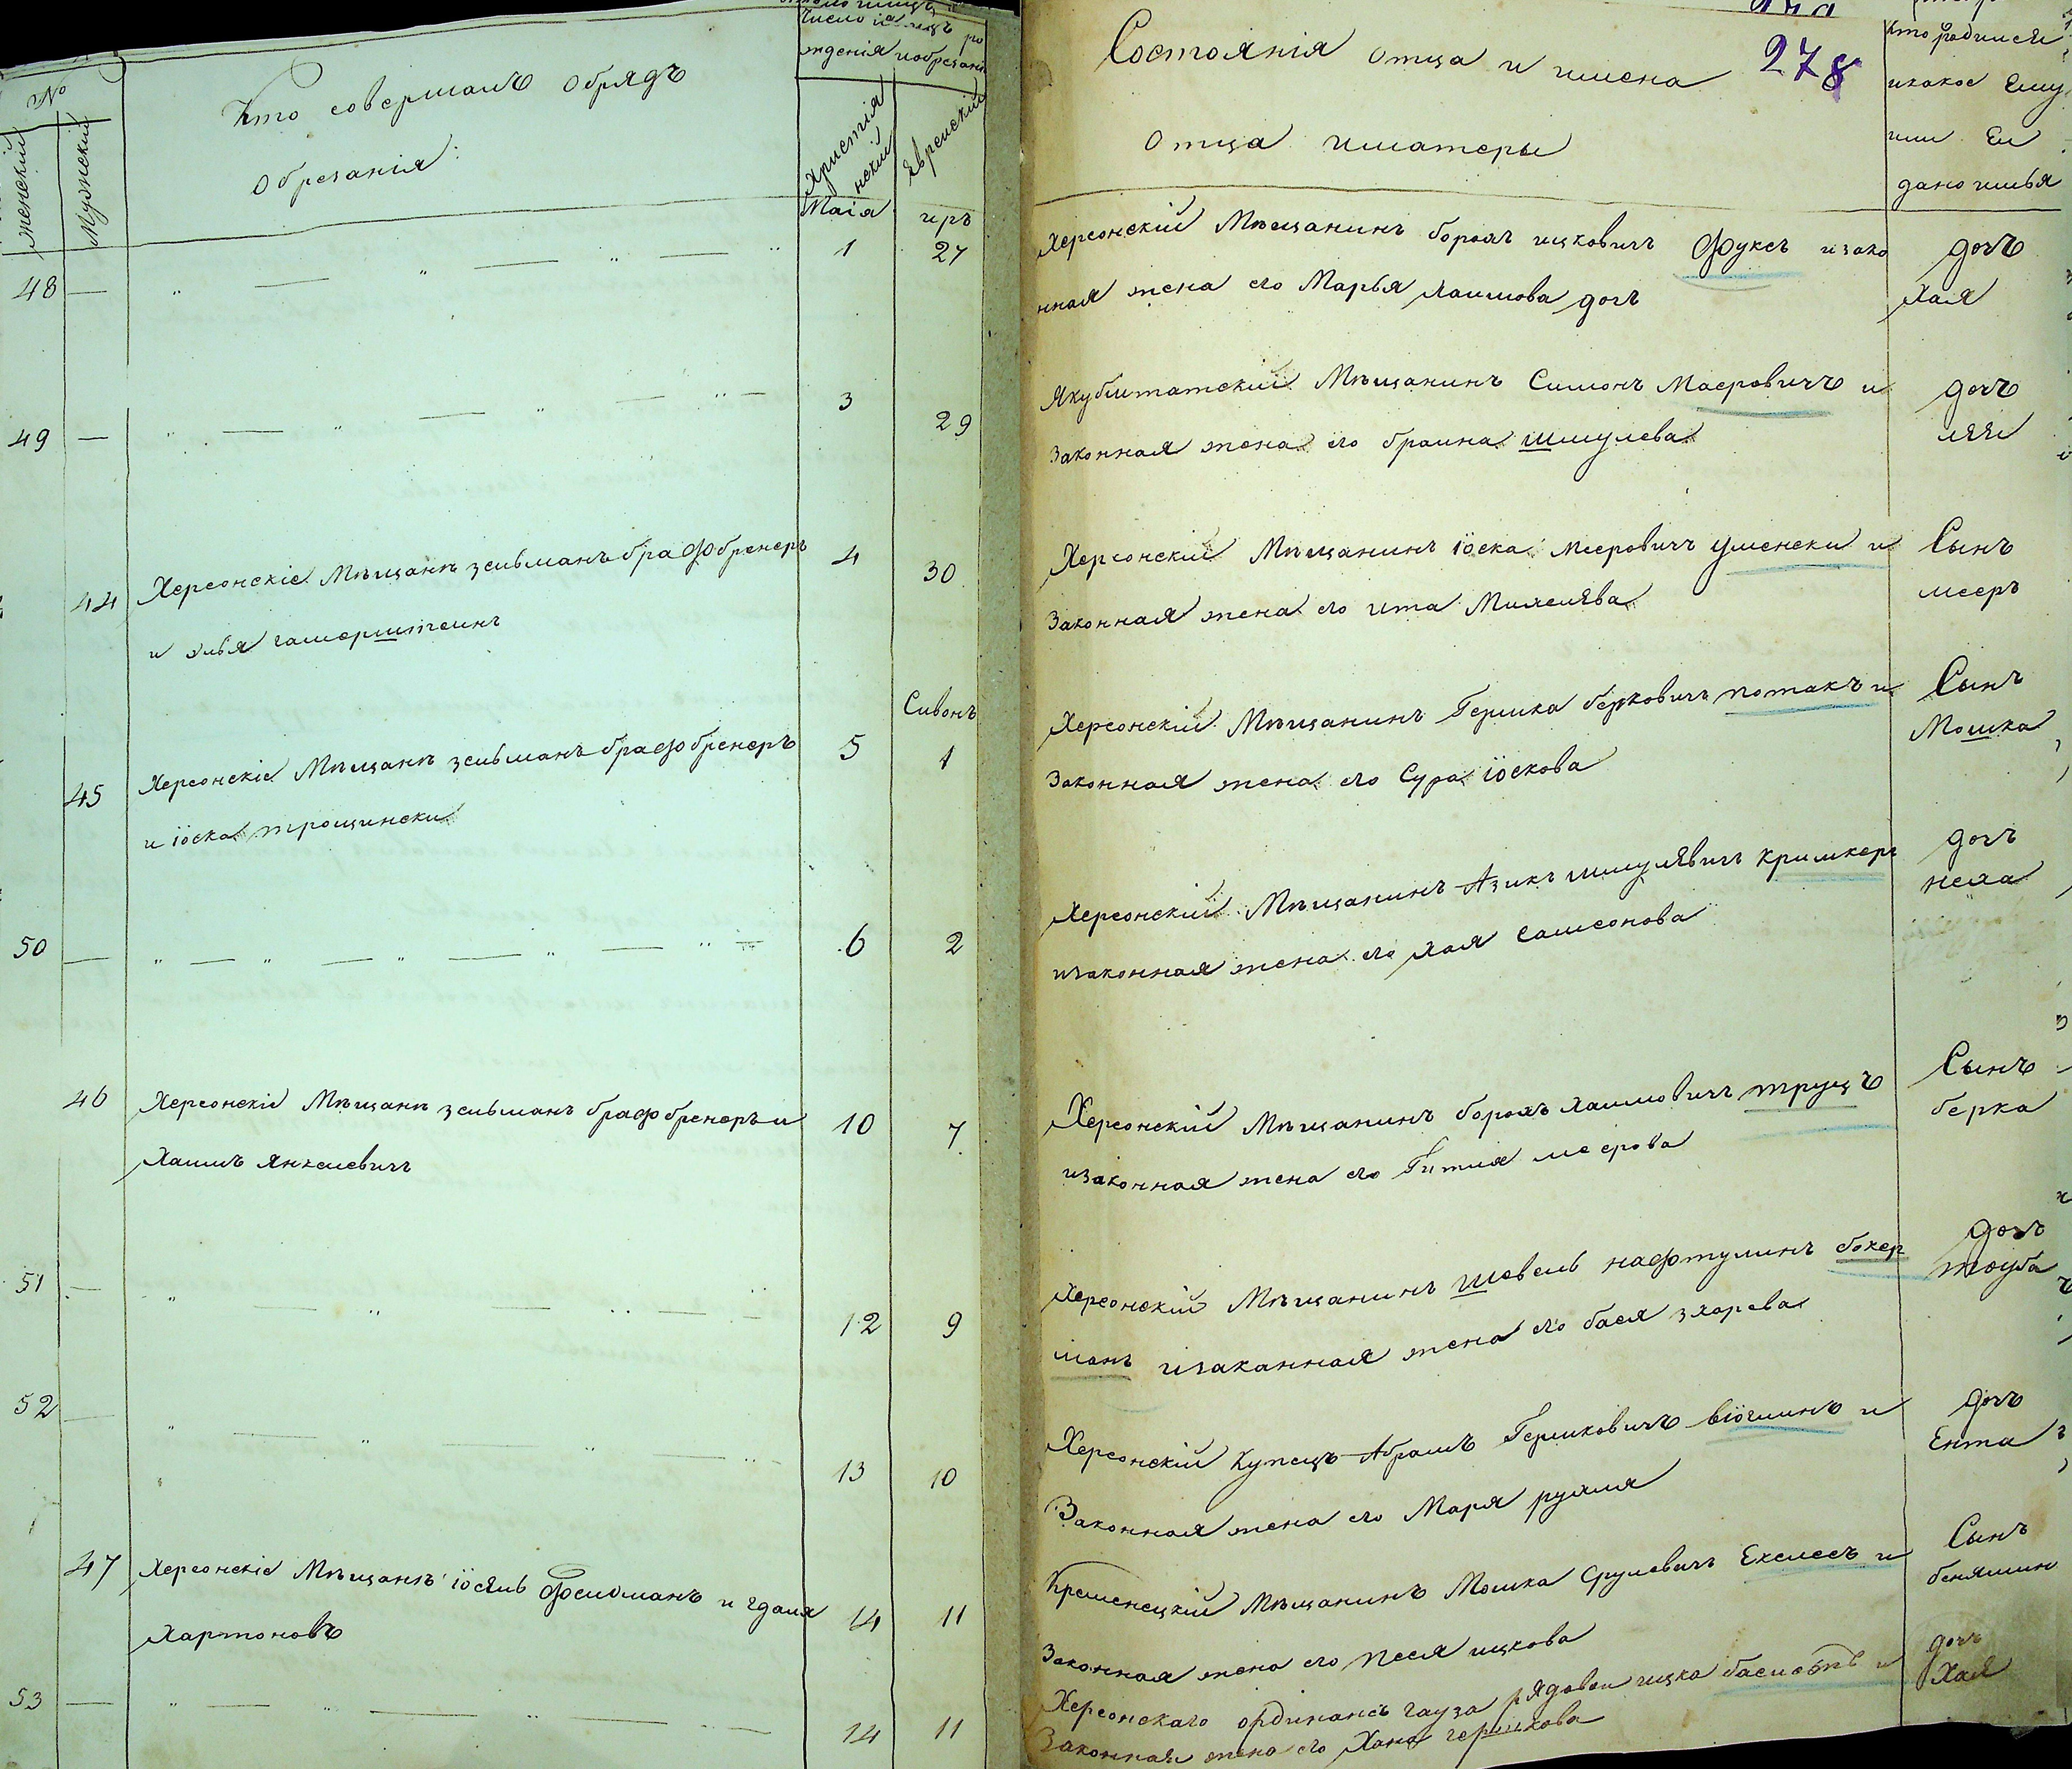 №
женскій
Мужскій
Кто совершалъ Обрядъ
Обрезанія:
Число и
ро
жденія и обрезанія
Христіа
нскій
Еврейскій
Маія
иръ
48 — 1 27
49 — 3 29
44 Херсонскіе Мѣщанѣ зельманъ брафбренеръ 4 30
и элья гамерштеинъ
Сивонъ
45 Херсонскіе Мѣщанѣ зельманъ брафбренеръ 5 1
и іоска трощински
50 — 6 2
46 Херсонскіе Мѣщанѣ зельманъ брафбренеръ и 10 7
Хаимъ Янкелевичъ
51 — 12 9
52 — 13 10
47 Херсонскіе Мѣщанѣ іосель Фельдманъ и гдаля 14 11
Хартоновъ
53 — 14 11
Состоянія отца и имена 278
Отца иматеры
кто родился
икакое Ему
или Ей
дано имья
Херсонскій Мѣщанинъ борохъ ицковичъ Фуксъ изако дочъ
нная жена его Марья хаимова дочъ Хая
Якубштатскій Мѣщанинъ Симонъ Маеровичъ и дочъ
Законная жена его браина шмулева лея
Херсонскій Мѣщанинъ іоска меировичъ уменски и Сынъ
Законная жена его ита Михелева мееръ
Херсонскій Мѣщанинъ Гершка берковичъ потакъ и Сынъ
Законная жена его Сура іоскова Мошка
Херсонскій Мѣщанинъ Азикъ шмулявичъ кримкеръ дочъ
изаконная жена его хая самсонова неха
Херсонскій Мѣщанинъ борохъ хаимовичъ труцъ Сынъ
изаконная жена его Гитля меерова берка
Херсонскій Мѣщанинъ шевель нафтулинъ бокер дочъ
манъ изаканная жена его бася зхарева тоуба
Херсонскій Купецъ Абрамъ Гершковичъ віогминъ и дочъ
Законная жена его Маря рухля Ента
Кременецкій Мѣщанинъ Мошка Срулевичъ Екелесъ и Сынъ
Законная жена его песя ицкова бенямин
Херсонскаго ординансъ гауза рядовои ицка басисътъ и дочъ
Законная жена его Хана гершкова Хая